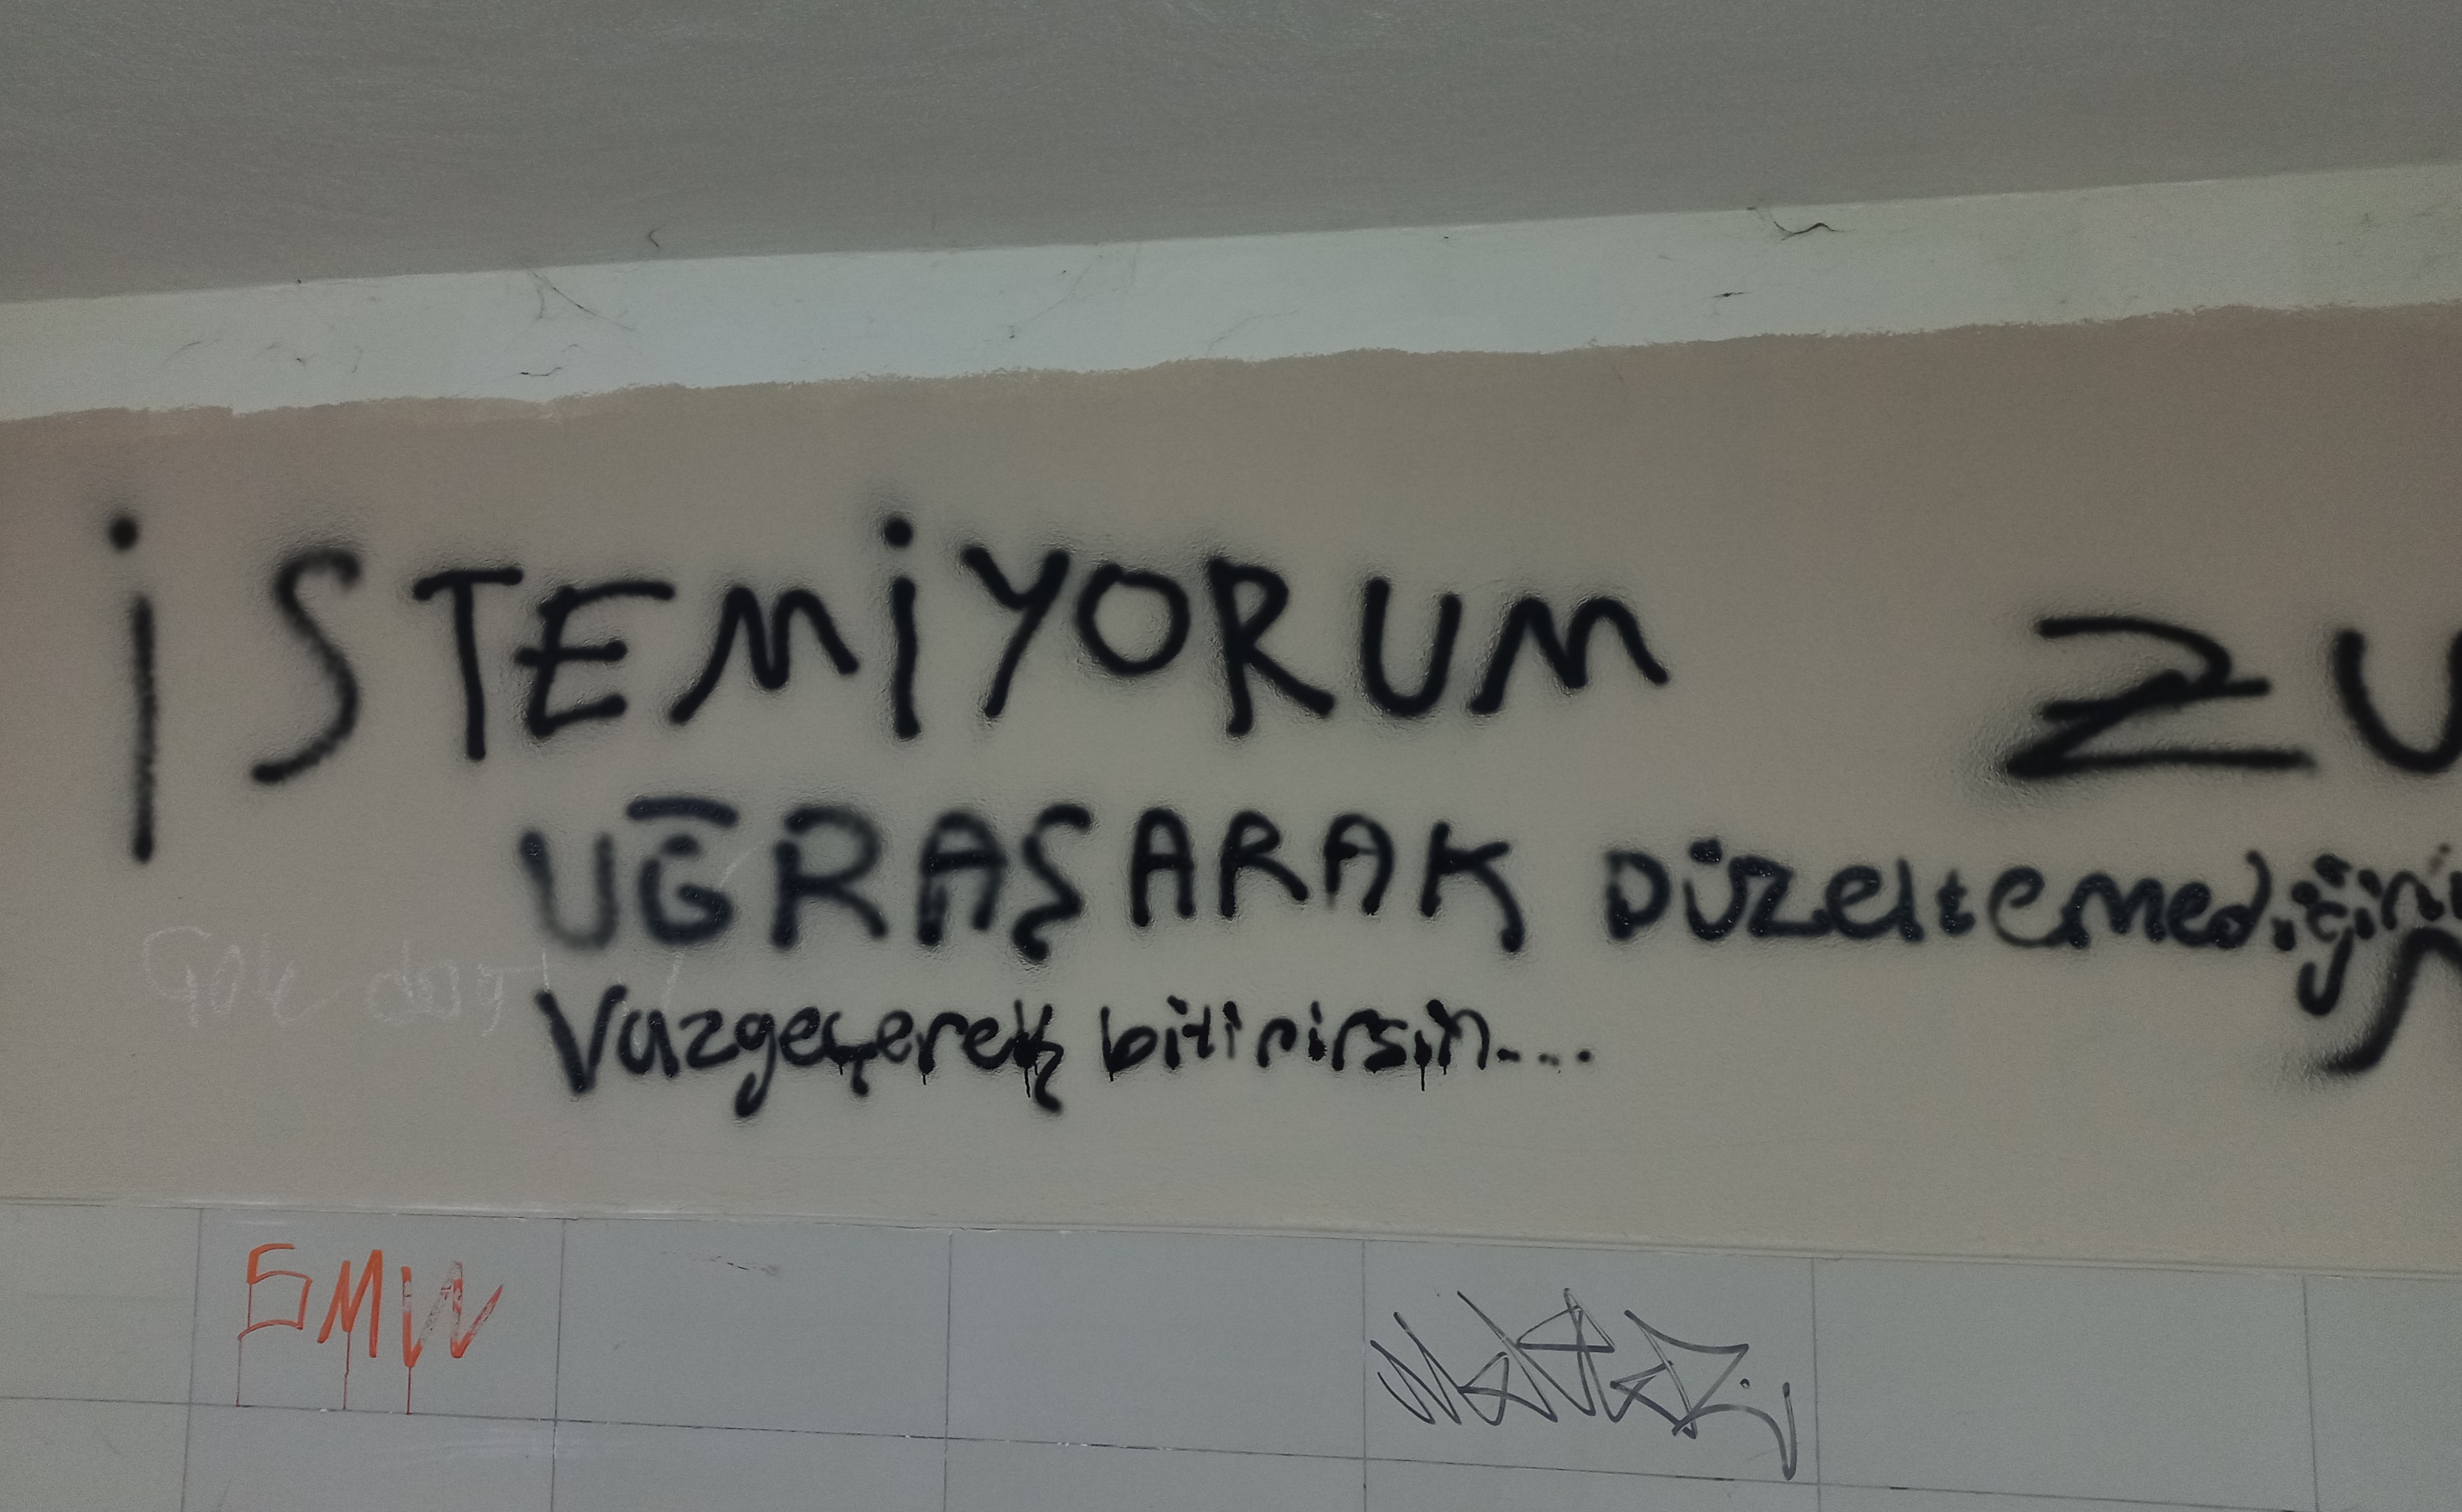 İSTEMİYORUM ZU
UĞRAŞARAK DÜZeltemediğini
Vazgeçerek bitirirsin....
SMW